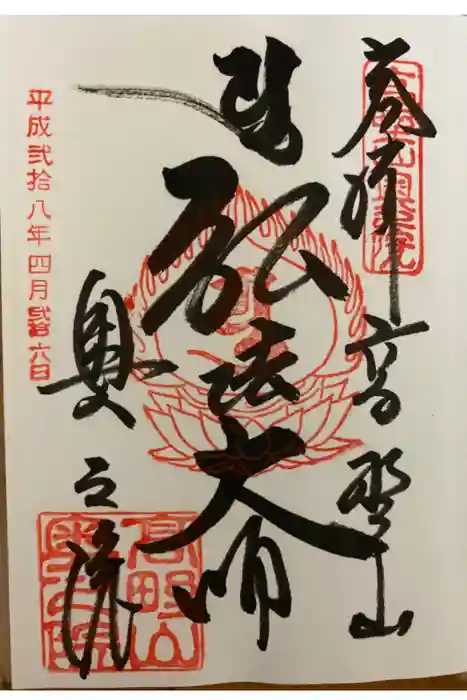 奉拝 高野山
弘法大師
奥之院
平成弐拾八年四月弐拾六日
高野山
奥之院